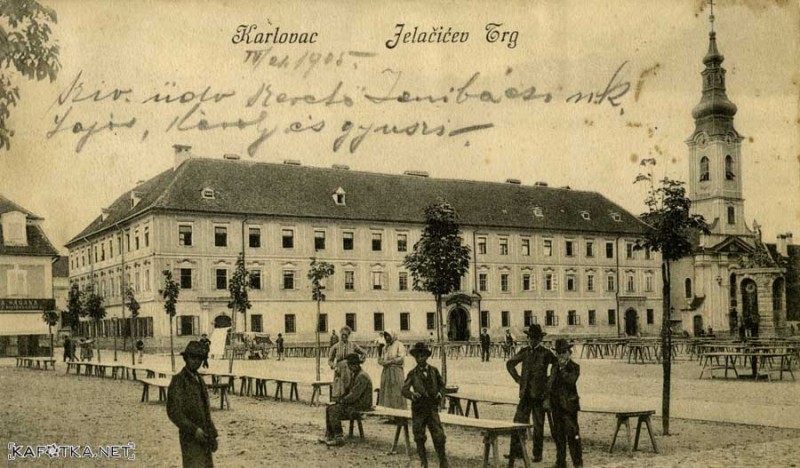 Karlovac Jelačićev Trg
1905.
Kiv. üdv Kereszt Jenibácsi nk.
Lajos, Károly és gyuszi
KAFOTKA.NET